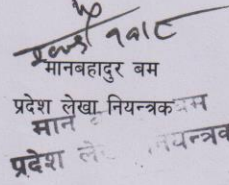 मानबहादुर बम
प्रदेश लेखा नियन्त्रक
मान बम
प्रदेश ले नियन्त्रक